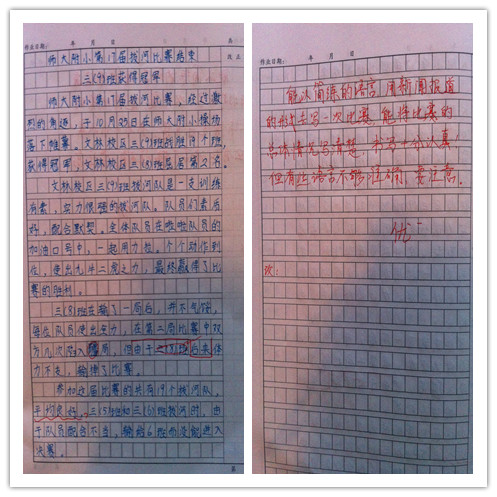 作业日期: 年 月 日
师大附小第17届拔河比赛结束
三(9)班获得冠军
师大附小第17届拔河比赛,经过激
烈的角逐,于10月25日在师大附小操场
落下帷幕。文林校区三(9)班战胜19个班,
获得冠军,文林校区三(8)班屈居第2名。
文林校区三(9)班拔河队是一支训练
有素,实力很强的拔河队。队员们素质
好,配合默契。全体队员在啦啦队员的
加油口号中,一起用力拉,个个动作到
位,使出九牛二虎之力,最终赢得了比
赛的胜利。
三(8)班在输了一局后,并不气馁,
每位队员使出实力,在第二局比赛中双
方几次陷入僵局,但由于三(8)班后来体
力不支,输掉了比赛。
参加这届比赛的共有19个拔河队,
平均良好。三(5)班和三(6)班拔河时,由
于队员配合不当,输给6班而没能进入
决赛。
作业日期: 年 月 日
能以简练的语言,用新闻报道
的形式去写一次比赛,能将比赛的
总体情况写清楚,书写十分认真!
但有些语言不够准确,要注意。
优-